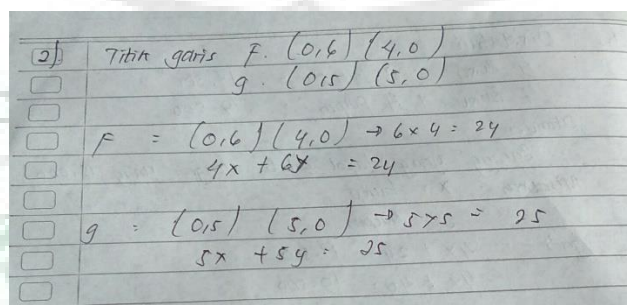 2). Titik garis F. (0,6) (4,0)
g. (0,5) (5,0)
F = (0,6) (4,0) → 6 x 4 = 24
4x + 6y = 24
g : (0,5) (5,0) → 5 x 5 = 25
5x + 5y = 25